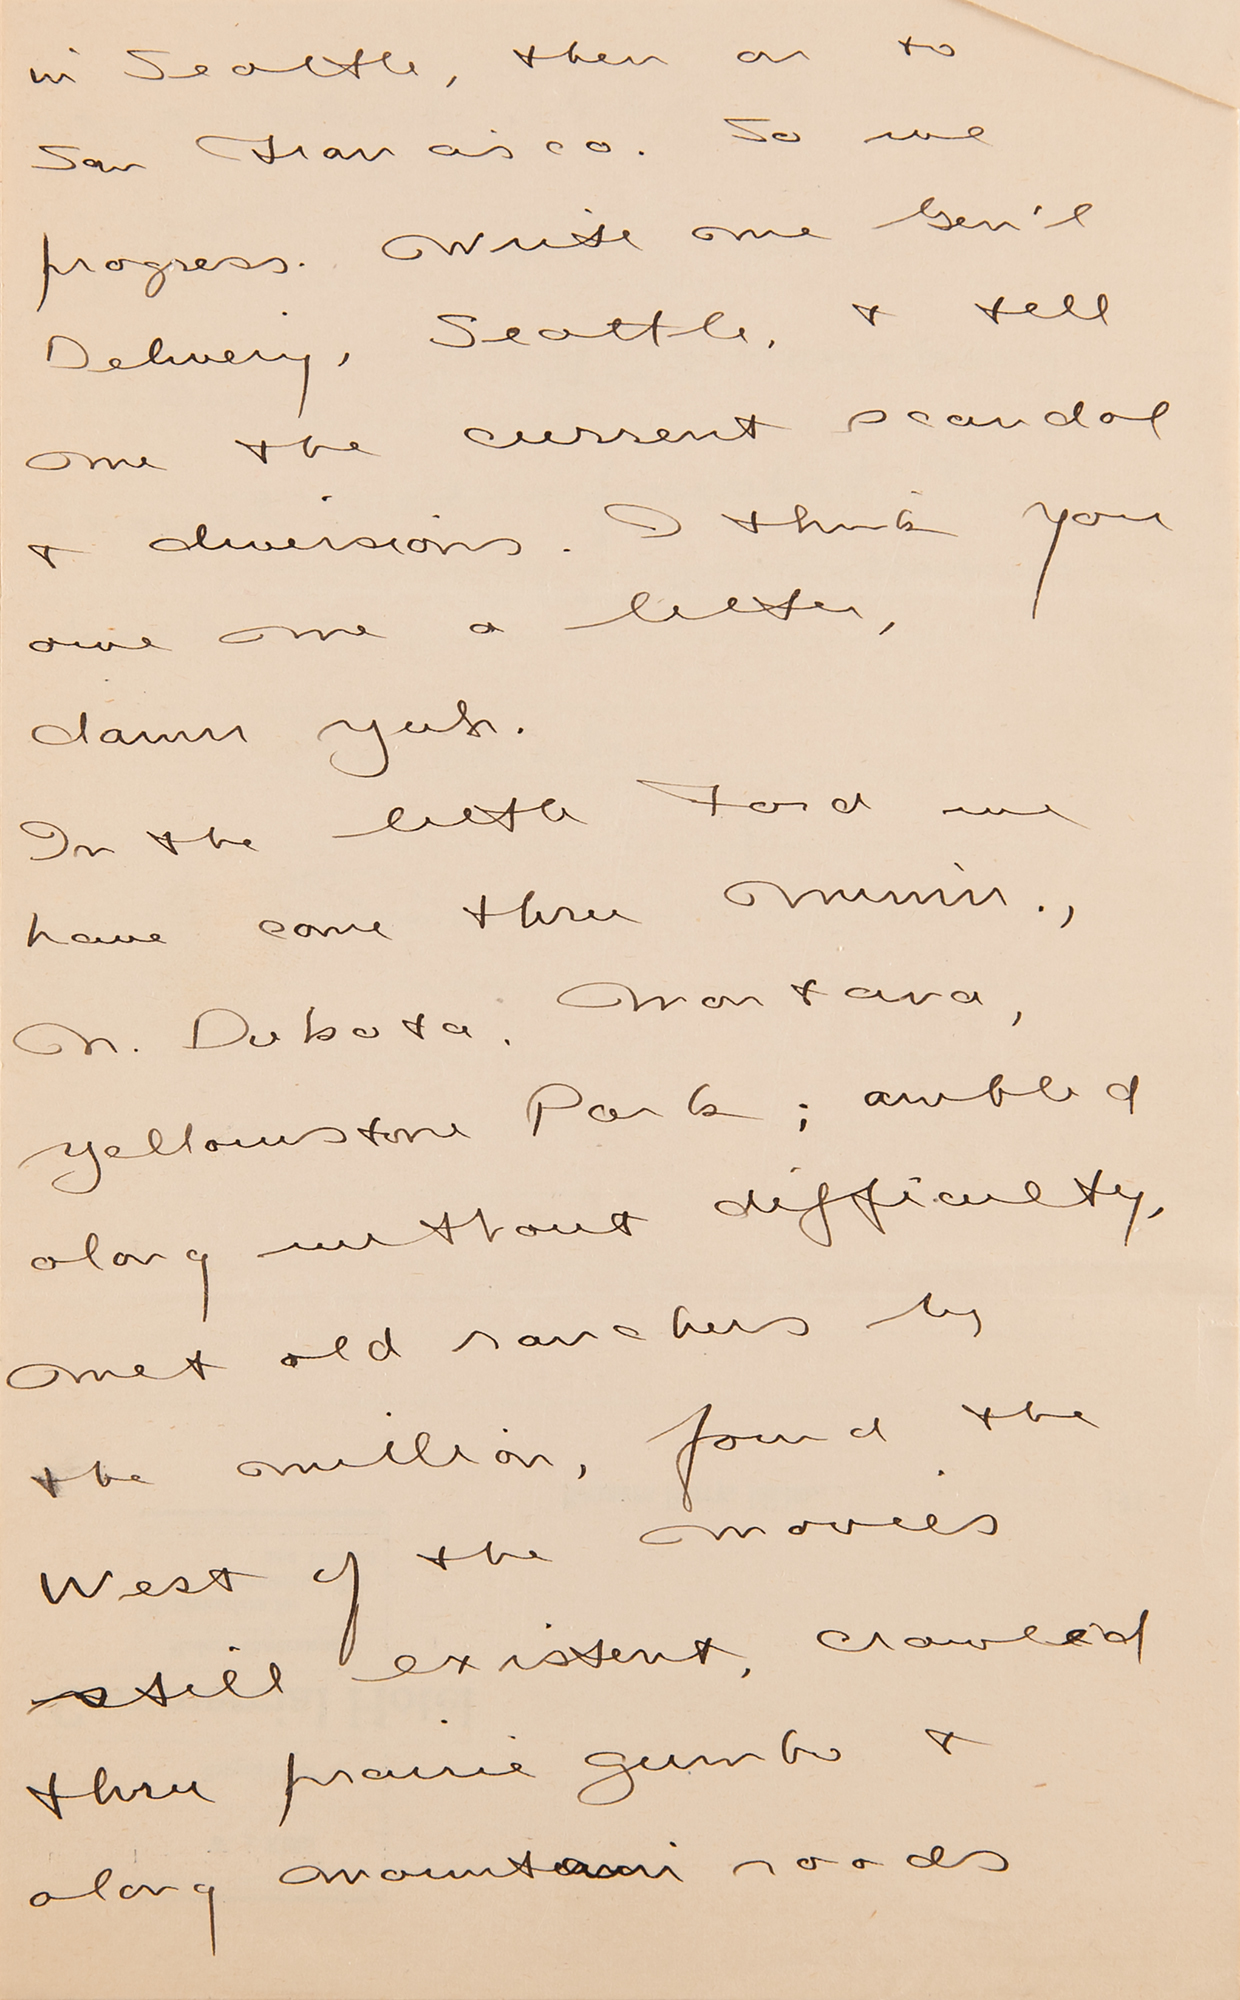 in Seattle, then on to
San Francisco. So we
progress. Write me Gen'l
Delivery, Seattle, & tell
me the current scandal
& diversions. I think you
owe me a letter,
damn yuh.
In the little Ford we
have come thru Minn.,
N. Dakota, Montana,
Yellowstone Park; ambled
along without difficulty,
met old ranchers by
the million, found the
West of the movies
still existent, crawled
thru prairie gumbo &
along mountain roads